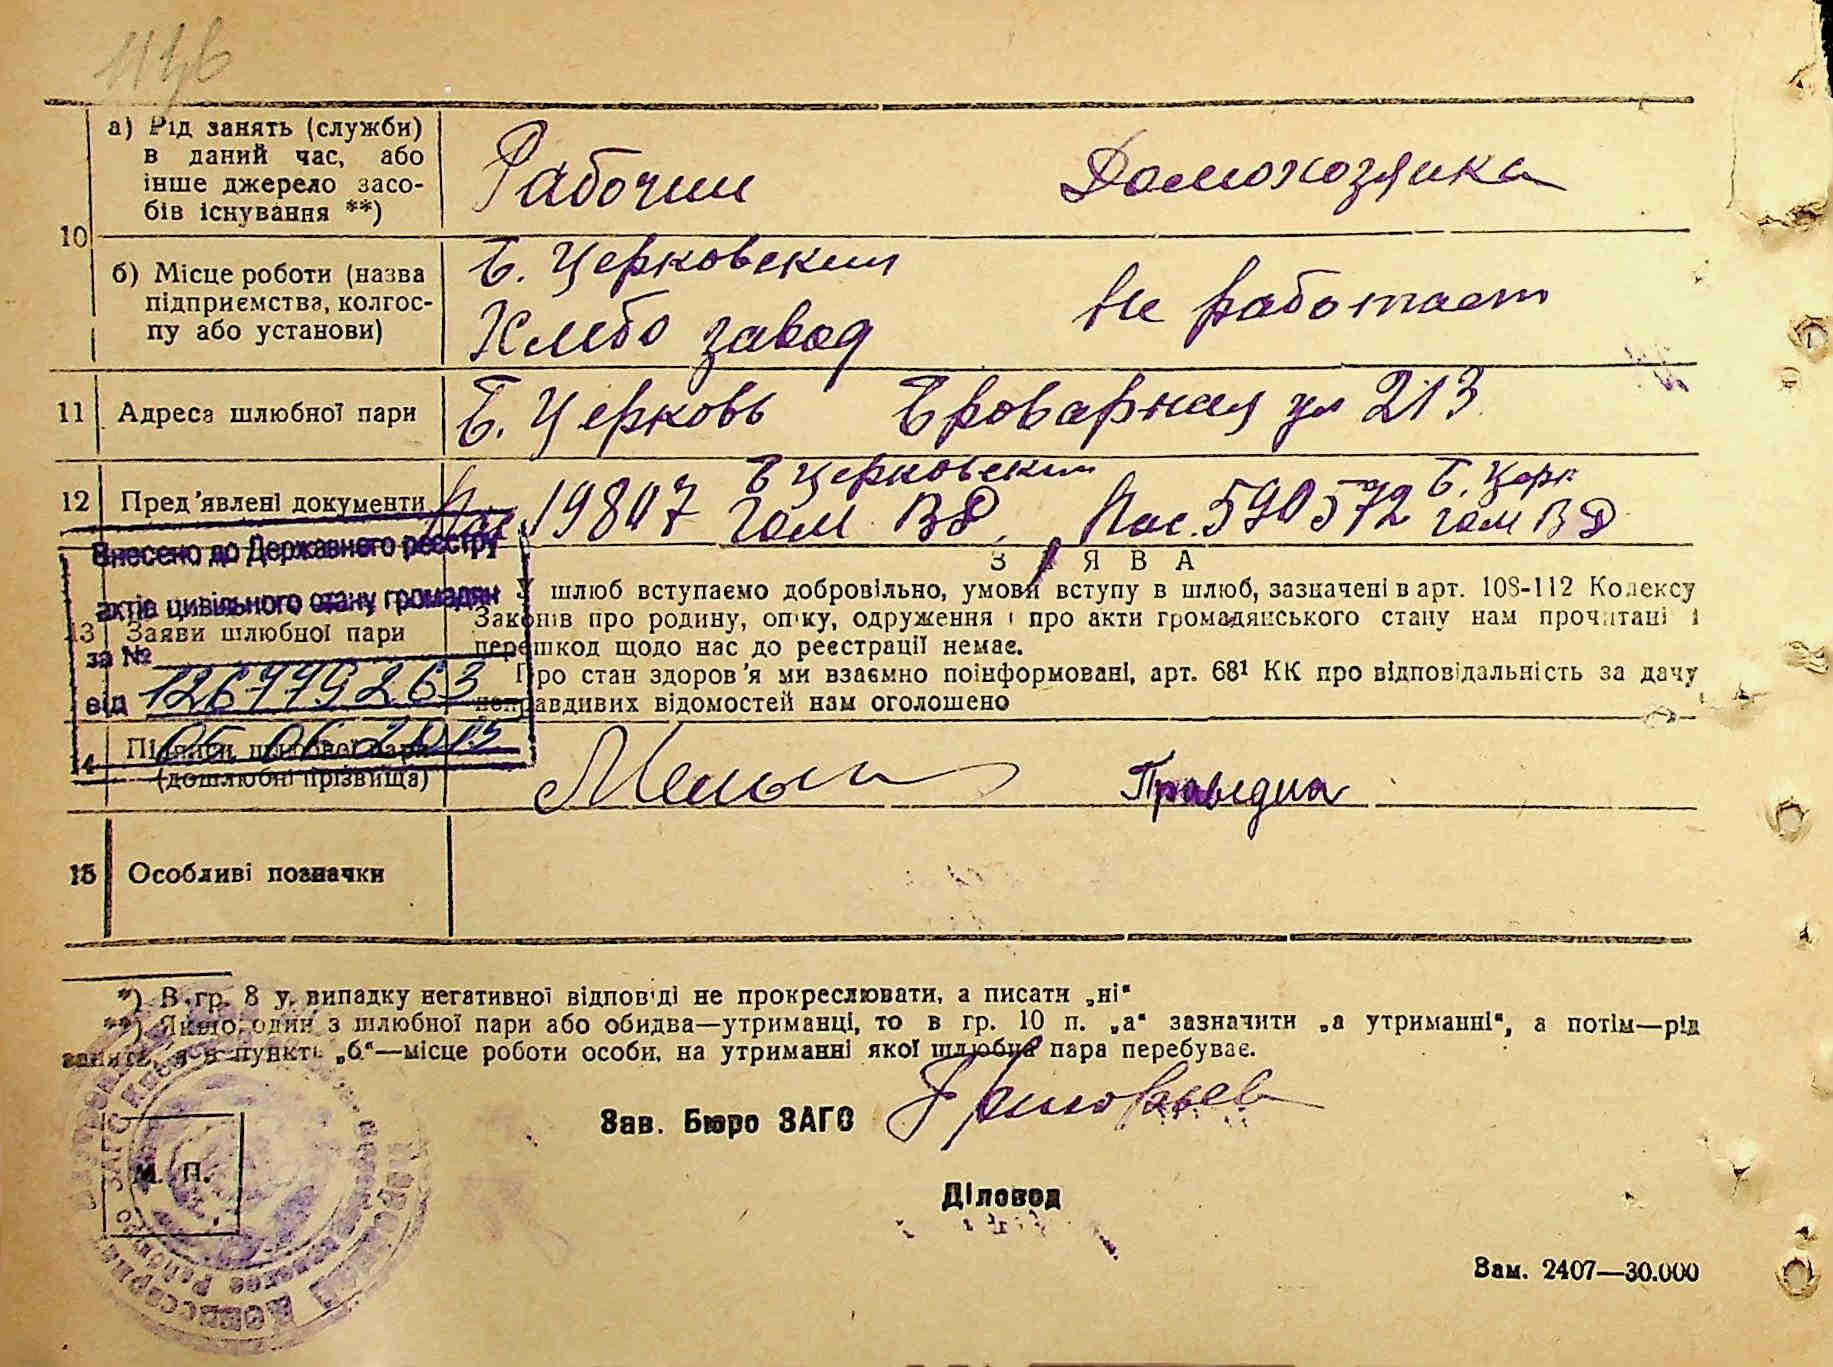 а) Рід занять (служби)
в даний час, або
інше джерело засо-
бів існування **)
Рабочий
Домохозяйка
10
б) Місце роботи (назва
підприємства, колгос-
пу або установи)
Б. Церковский
Хлебо завод
Не работает
11 Адреса шлюбної пари
Б. Церковь Броварная ул 213
12 Пред'явлені документи
Пас. 19807 Б Церковский
Гом
Пас. 590572 Б. Церк
гом
Внесено до Державного реєстру
актів цивільного стану громадян
за №
126779263
від
05 06 2015
ЗАЯВА
13 Заяви шлюбної пари
У шлюб вступаємо добровільно, умови вступу в шлюб, зазначені в арт. 108-112 Кодексу
Законів про родину, опіку, одруження і про акти громадянського стану нам прочитані і
перешкод щодо нас до реєстрації немає.
Про стан здоров'я ми взаємно поінформовані, арт. 68¹ КК про відповідальність за дачу
неправдивих відомостей нам оголошено
14 Підписи шлюбної пари
(дошлюбні прізвища)
Праведна
15 Особливі позначки
*) В гр. 8 у випадку негативної відповіді не прокреслювати, а писати „ні“
**) Якщо один з шлюбної пари або обидва—утриманці, то в гр. 10 п. „а“ зазначити „а утриманні“, а потім—рід
занять, а в пункті „б“—місце роботи особи, на утриманні якої шлюбна пара перебуває.
Зав. Бюро ЗАГС
М. П.
Діловод
Зам. 2407—30.000